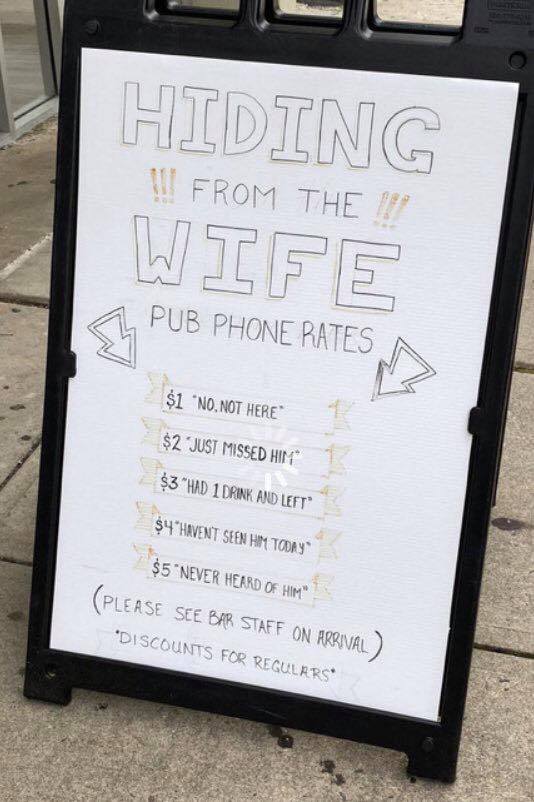 HIDING
!!! FROM THE !!!
WIFE
PUB PHONE RATES
$1 "NO, NOT HERE"
$2 "JUST MISSED HIM"
$3 "HAD 1 DRINK AND LEFT"
$4 "HAVEN'T SEEN HIM TODAY"
$5 "NEVER HEARD OF HIM"
(PLEASE SEE BAR STAFF ON ARRIVAL)
*DISCOUNTS FOR REGULARS*